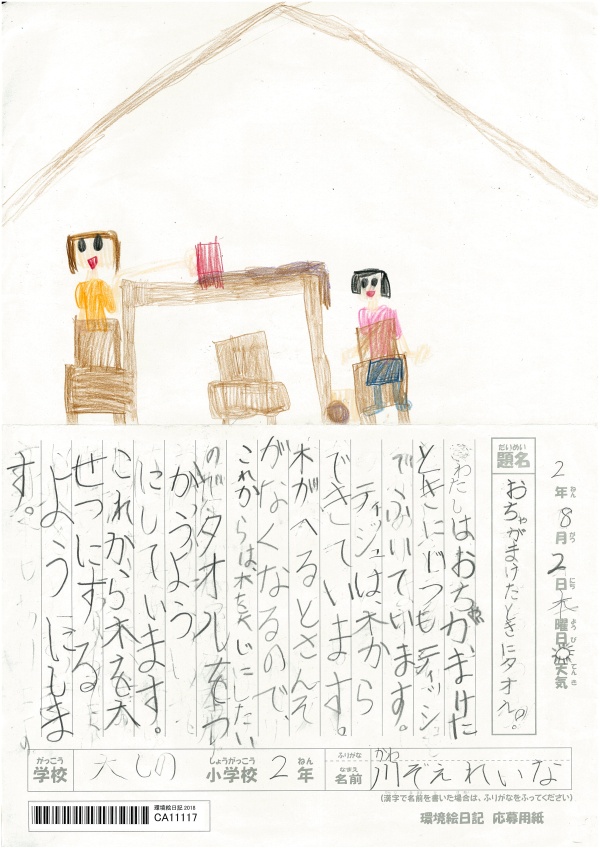 2年8月2日木曜日 天気
ねん がつ にち ようび てんき
だいめい
題名
おちゃがまけたときにタオル。
わたしはおちゃがまけた
ときにいつもティッシュ
でふいています。
ティッシュは木から
できています。
木がへるとさんそ
がなくなるので、
これからは木を大じにしたい
のでタオルをつ
かうよう
にしています。
これから木を大
せつにする
ようにしま
す。
がっこう
学校
大しの
しょうがっこう
小学校
2
ねん
年
ふりがな
なまえ
名前
かわ
川ぞえ れいな
(漢字で名前を書いた場合は、ふりがなをふってください)
環境絵日記 2018
CA11117
環境絵日記 応募用紙